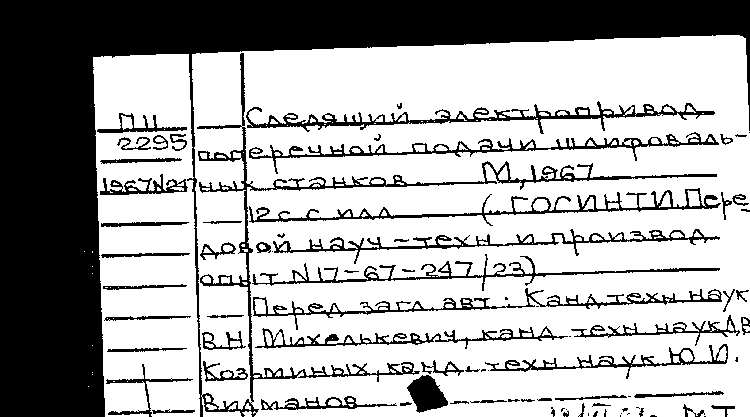 П11
2295
1967N247
Следящий электропривод
поперечной подачи шлифоваль-
ных станков. М, 1967
12 с с илл (ГОСИНТИ. Пере
довой науч-техн и производ
опыт N17-67-247/23)
Перед загл. авт: Канд. техн наук
В.Н. Михелькевич, канд. техн наук
Козьминых, канд. техн наук Ю.И.
Видманов